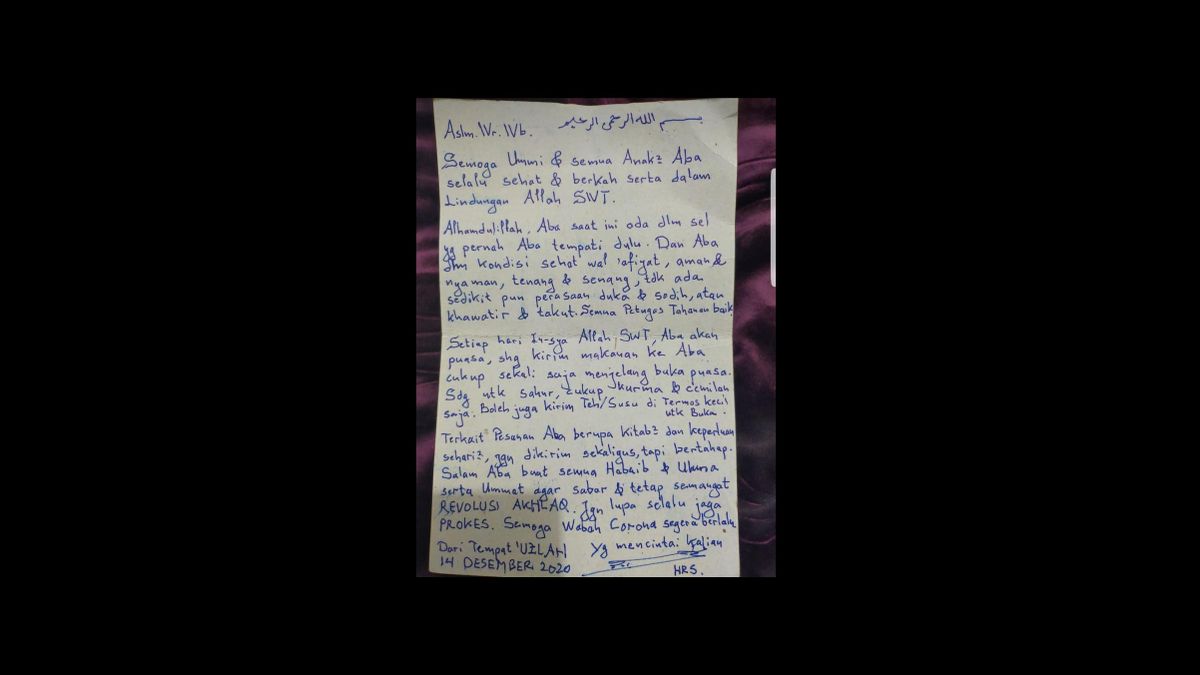 بسم الله الرحمن الرحيم
Aslm. Wr. Wb.
Semoga Ummi & semua Anak2 Aba
selalu sehat & berkah serta dalam
Lindungan Allah SWT.
Alhamdulillah, Aba saat ini ada dlm sel
yg pernah Aba tempati dulu. Dan Aba
dlm kondisi sehat wal 'afiyat, aman &
nyaman, tenang & senang, tdk ada
sedikit pun perasaan duka & sedih, atau
khawatir & takut. Semua Petugas Tahanan baik
Setiap hari In-sya Allah SWT, Aba akan
puasa, shg kirim makanan ke Aba
cukup sekali saja menjelang buka puasa.
Sdg utk sahur, cukup kurma & cemilan
saja. Boleh juga kirim Teh/Susu di Termos kecil
utk Buka.
Terkait Pesanan Aba berupa kitab2 dan keperluan
sehari2, jgn dikirim sekaligus, tapi bertahap.
Salam Aba buat semua Habaib & Ulama
serta Ummat agar sabar & tetap semangat
REVOLUSI AKHLAQ. Jgn lupa selalu jaga
PROKES. Semoga Wabah Corona segera berlalu
Dari Tempat 'UZLAH Yg mencintai kalian
14 DESEMBER 2020 HRS.